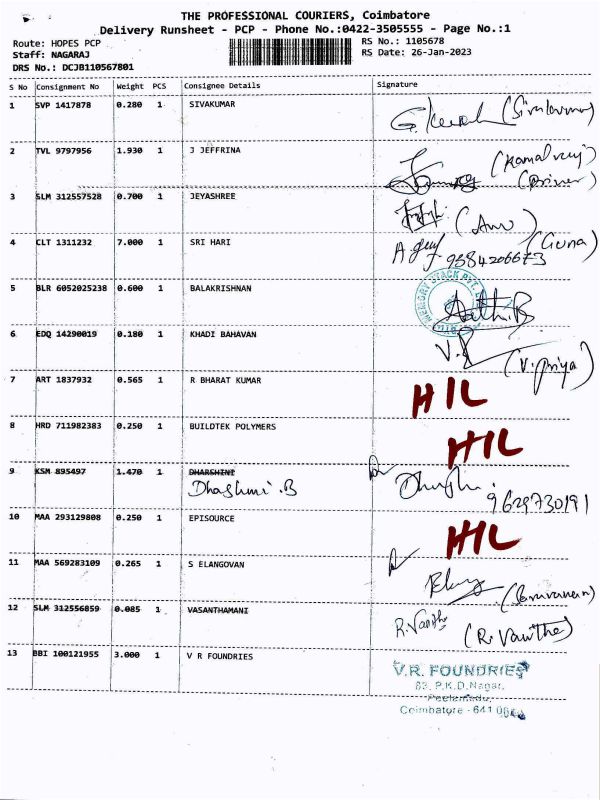 THE PROFESSIONAL COURIERS, Coimbatore
Delivery Runsheet - PCP - Phone No.:0422-3505555 - Page No.:1
Route: HOPES PCP RS No.: 1105678
Staff: NAGARAJ RS Date: 26-Jan-2023
DRS No.: DCJB110567801
S No Consignment No Weight PCS Consignee Details Signature
1 SVP 1417878 0.280 1 SIVAKUMAR (Sivakumar)
2 TVL 9797956 1.930 1 J JEFFRINA (Kamalraj)
(Driver)
3 SLM 312557528 0.700 1 JEYASHREE (Anu)
4 CLT 1311232 7.000 1 SRI HARI (Guna)
9384206673
5 BLR 6052025238 0.600 1 BALAKRISHNAN MEMORY STACK PVT.
6 EDQ 14290019 0.180 1 KHADI BAHAVAN (V.Priya)
7 ART 1837932 0.565 1 R BHARAT KUMAR HIL
8 HRD 711982383 0.250 1 BUILDTEK POLYMERS HIL
9 KSM 895497 1.470 1 DHARSHINI
Dhashmi .B 9629730191
10 MAA 293129808 0.250 1 EPISOURCE HIL
11 MAA 569283109 0.265 1 S ELANGOVAN
12 SLM 312556859 0.085 1 VASANTHAMANI R.Vanitha (R.Vanitha)
13 BBI 100121955 3.000 1 V R FOUNDRIES V.R. FOUNDRIES
83, P.K.D.Nagar,
Peelamedu,
Coimbatore - 641 004